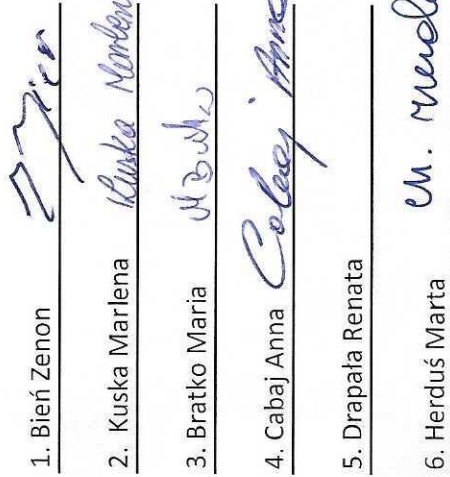 1. Bień Zenon Z Bień
2. Kuska Marlena Kuska Marlen
3. Bratko Maria
4. Cabaj Anna Cabaj Anna
5. Drapała Renata
6. Herduś Marta M.